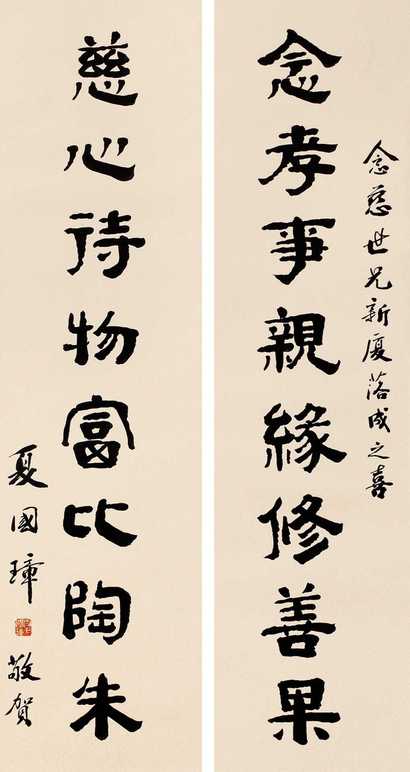 念慈世兄新廈落成之喜
念孝事親緣修善果
慈心待物富比陶朱
夏國璋敬賀